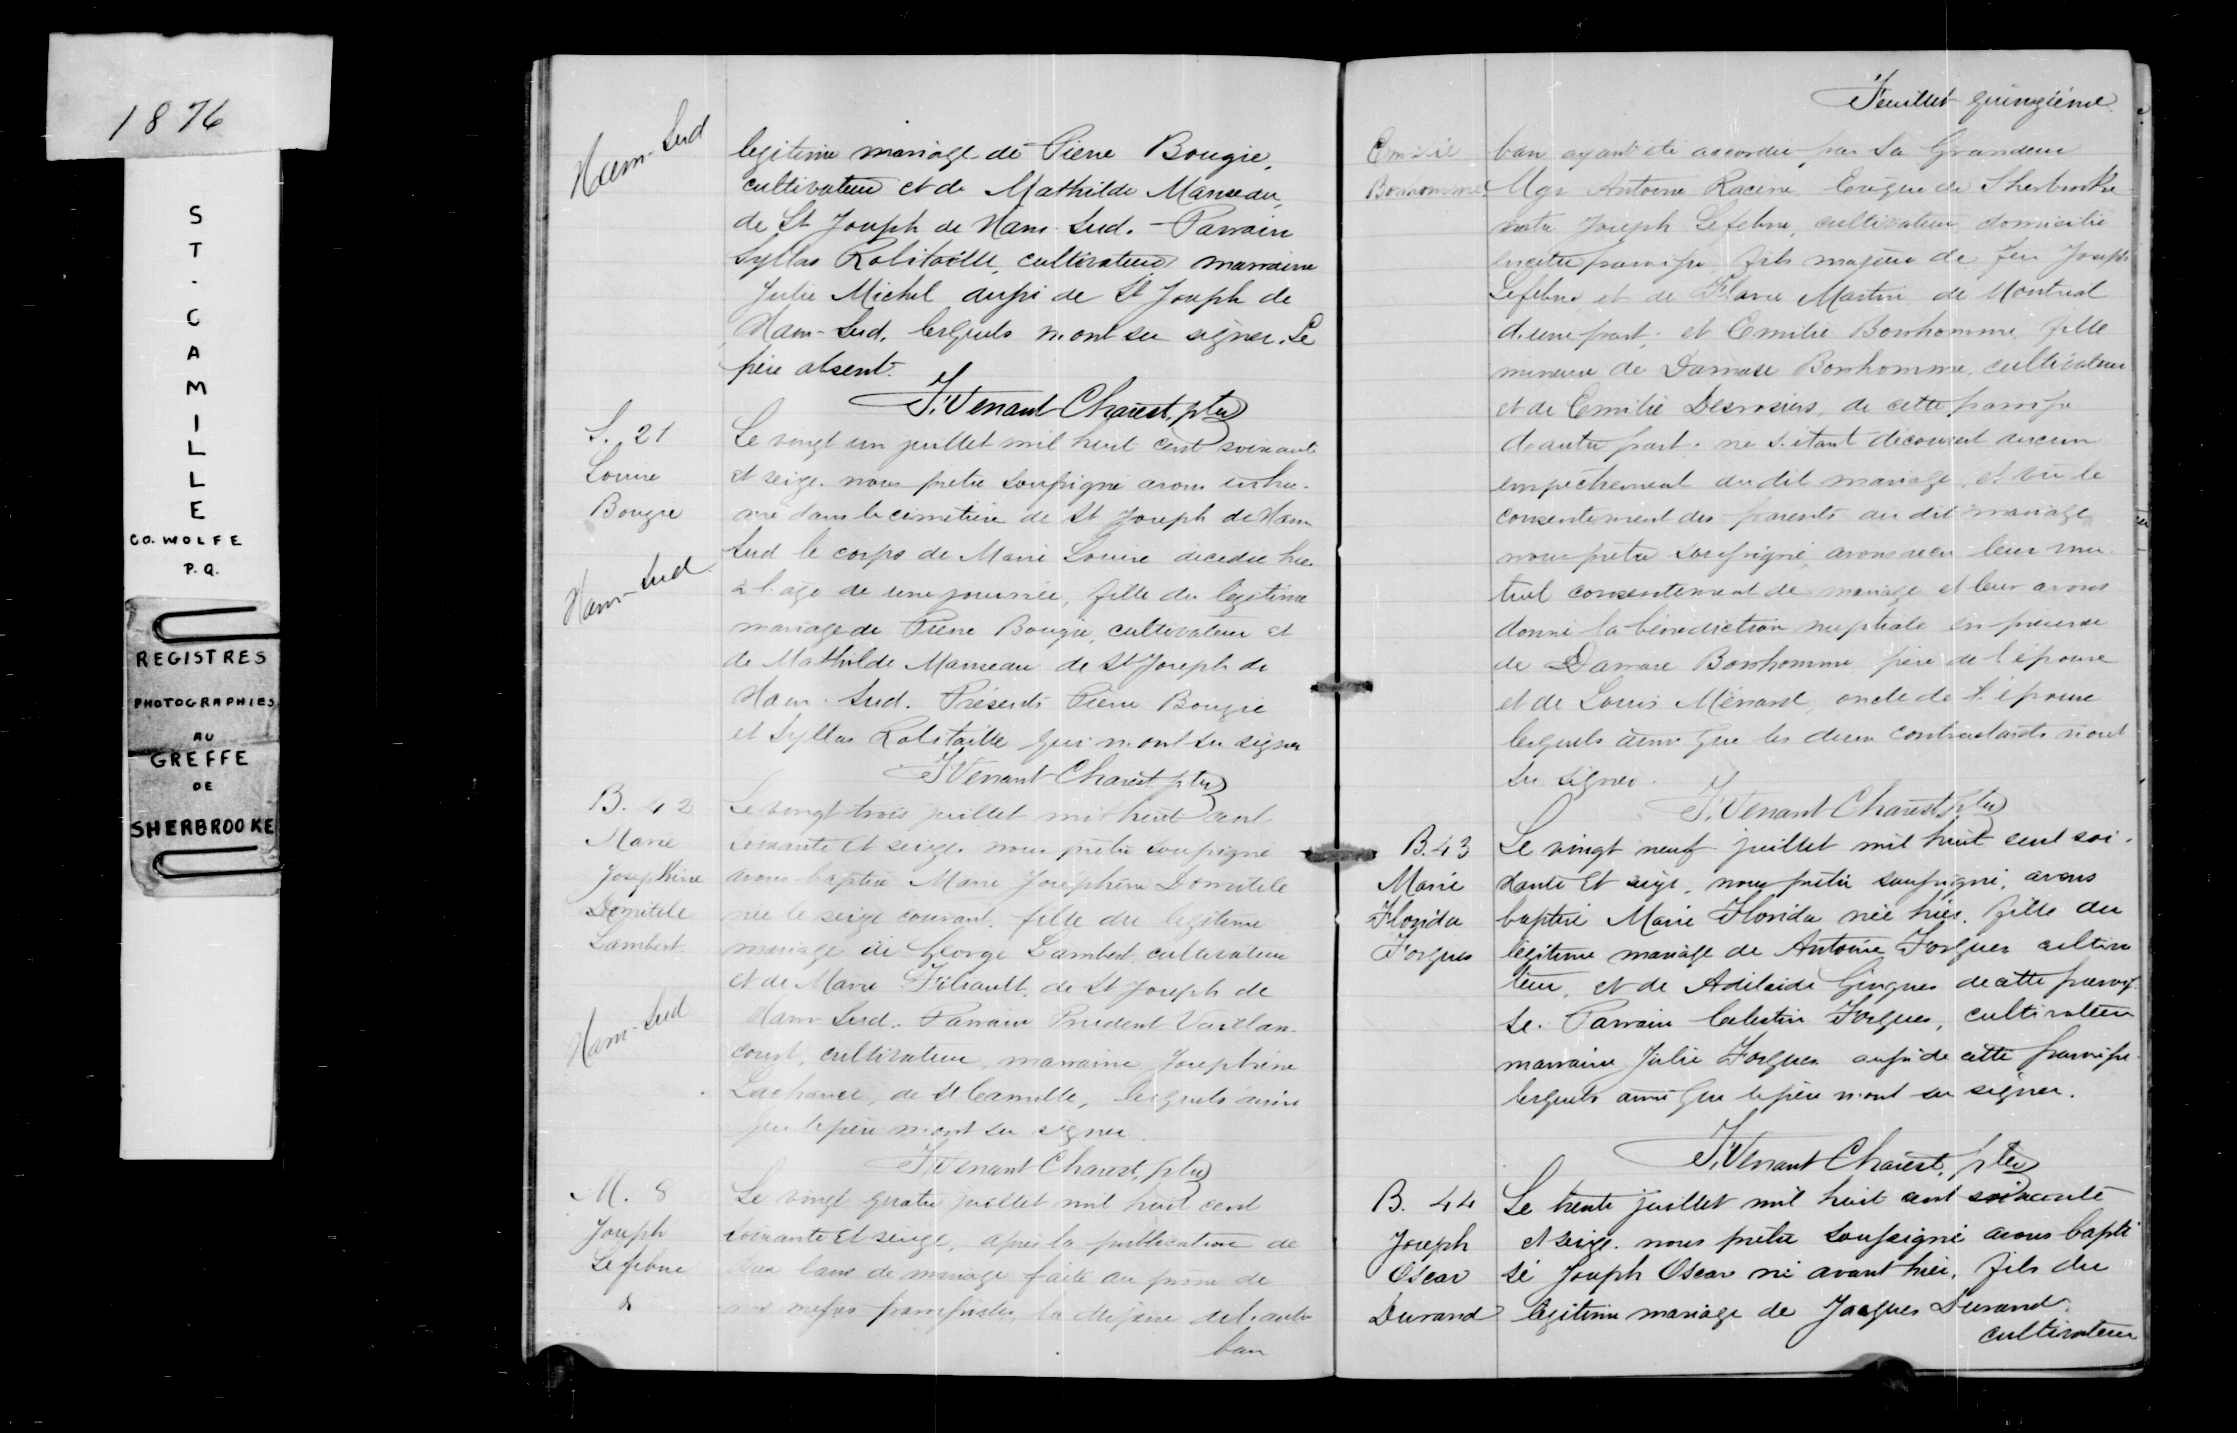 1876
ST. CAMILLE
CO. WOLFE
P.Q.
REGISTRES
PHOTOGRAPHIES
AU
GREFFE
DE
SHERBROOKE
Ham-Sud
legitime mariage de Pierre Bougie,
cultivateur et de Mathilde Manseau,
de St Joseph de Ham-Sud. - Parrain
Syllas Robitaille, cultivateur, marraine
Julie Michel aussi de St Joseph de
Ham-Sud, lesquels n'ont su signer. Le
père absent.
F. Venant Charest, ptre
S. 21
Louise
Bougie
Ham-Sud
Le vingt un juillet mil huit cent soixante
et seize, nous prêtre soussigné avons inhu-
mé dans le cimetière de St Joseph de Ham
Sud le corps de Marie Louise décédée hier
à l'age de une journée, fille du légitime
mariage de Pierre Bougie, cultivateur et
de Mathilde Manseau de St Joseph de
Ham-Sud. Présents Pierre Bougie
et Syllas Robitaille qui n'ont su signer
F. Venant Charest ptre
B. 42
Marie
Josephine
Domitele
Lambert
Ham-Sud
Le vingt trois juillet mil huit cent
soixante et seize, nous prêtre soussigné
avons baptisé Marie Josephine Domitele
née le seize courant, fille du legitime
mariage de George Lambert, cultivateur
et de Marie de St Joseph de
Ham-Sud. Parrain Prudent Vaillan-
court, cultivateur, marraine Josephine
Lachance, de St Camille, lesquels ainsi
que le père n'ont su signer.
F. Venant Charest, ptre
M. 8
Joseph
Lefebvre
&
Le vingt quatre juillet mil huit cent
soixante et seize, après la publication de
deux bans de mariage faite au prône de
nos messes paroissiales, la dispense de l'autre
ban
Feuillet quinzième
Emilie
Bonhomme
ban ayant été accordée par Sa Grandeur
Mgr Antoine Racine Evêque de Sherbrooke
entre Joseph Lefebvre, cultivateur domicilié
en cette paroisse, fils majeur de feu Joseph
Lefebvre et de Flavie Martin de Montreal
d'une part; et Emilie Bonhomme fille
mineure de Damase Bonhomme, cultivateur
et de Emilie Desrosiers, de cette paroisse
de autre part; ne s'étant découvert aucun
empêchement au dit mariage, et vu le
consentement des parents au dit mariage
nous prêtre soussigné, avons reçu leur mu-
tuel consentement de mariage et leur avons
donné la bénédiction nuptiale en présence
de Damase Bonhomme père de l'épouse
et de Louis Ménard, oncle de l'épouse
lesquels ainsi que les deux contractants n'ont
su signer.
F. Venant Charest, ptre
B. 43
Marie
Florida
Forgues
Le vingt neuf juillet mil huit cent soi-
xante et seize, nous prêtre soussigné, avons
baptisé Marie Florida née hier, fille du
légitime mariage de Antoine Forgues cultiva
teur, et de Adélaide Gingues de cette parois
se. Parrain Celestin Forgues, cultivateur
marraine Julie Forgues aussi de cette paroisse
lesquels ainsi que le père n'ont su signer.
F. Venant Charest, ptre
B. 44
Joseph
Oscar
Durand
Le trente juillet mil huit cent soixante
et seize, nous prêtre soussigné avons bapti
sé Joseph Oscar né avant hier, fils du
légitime mariage de Jacques Durand
cultivateur